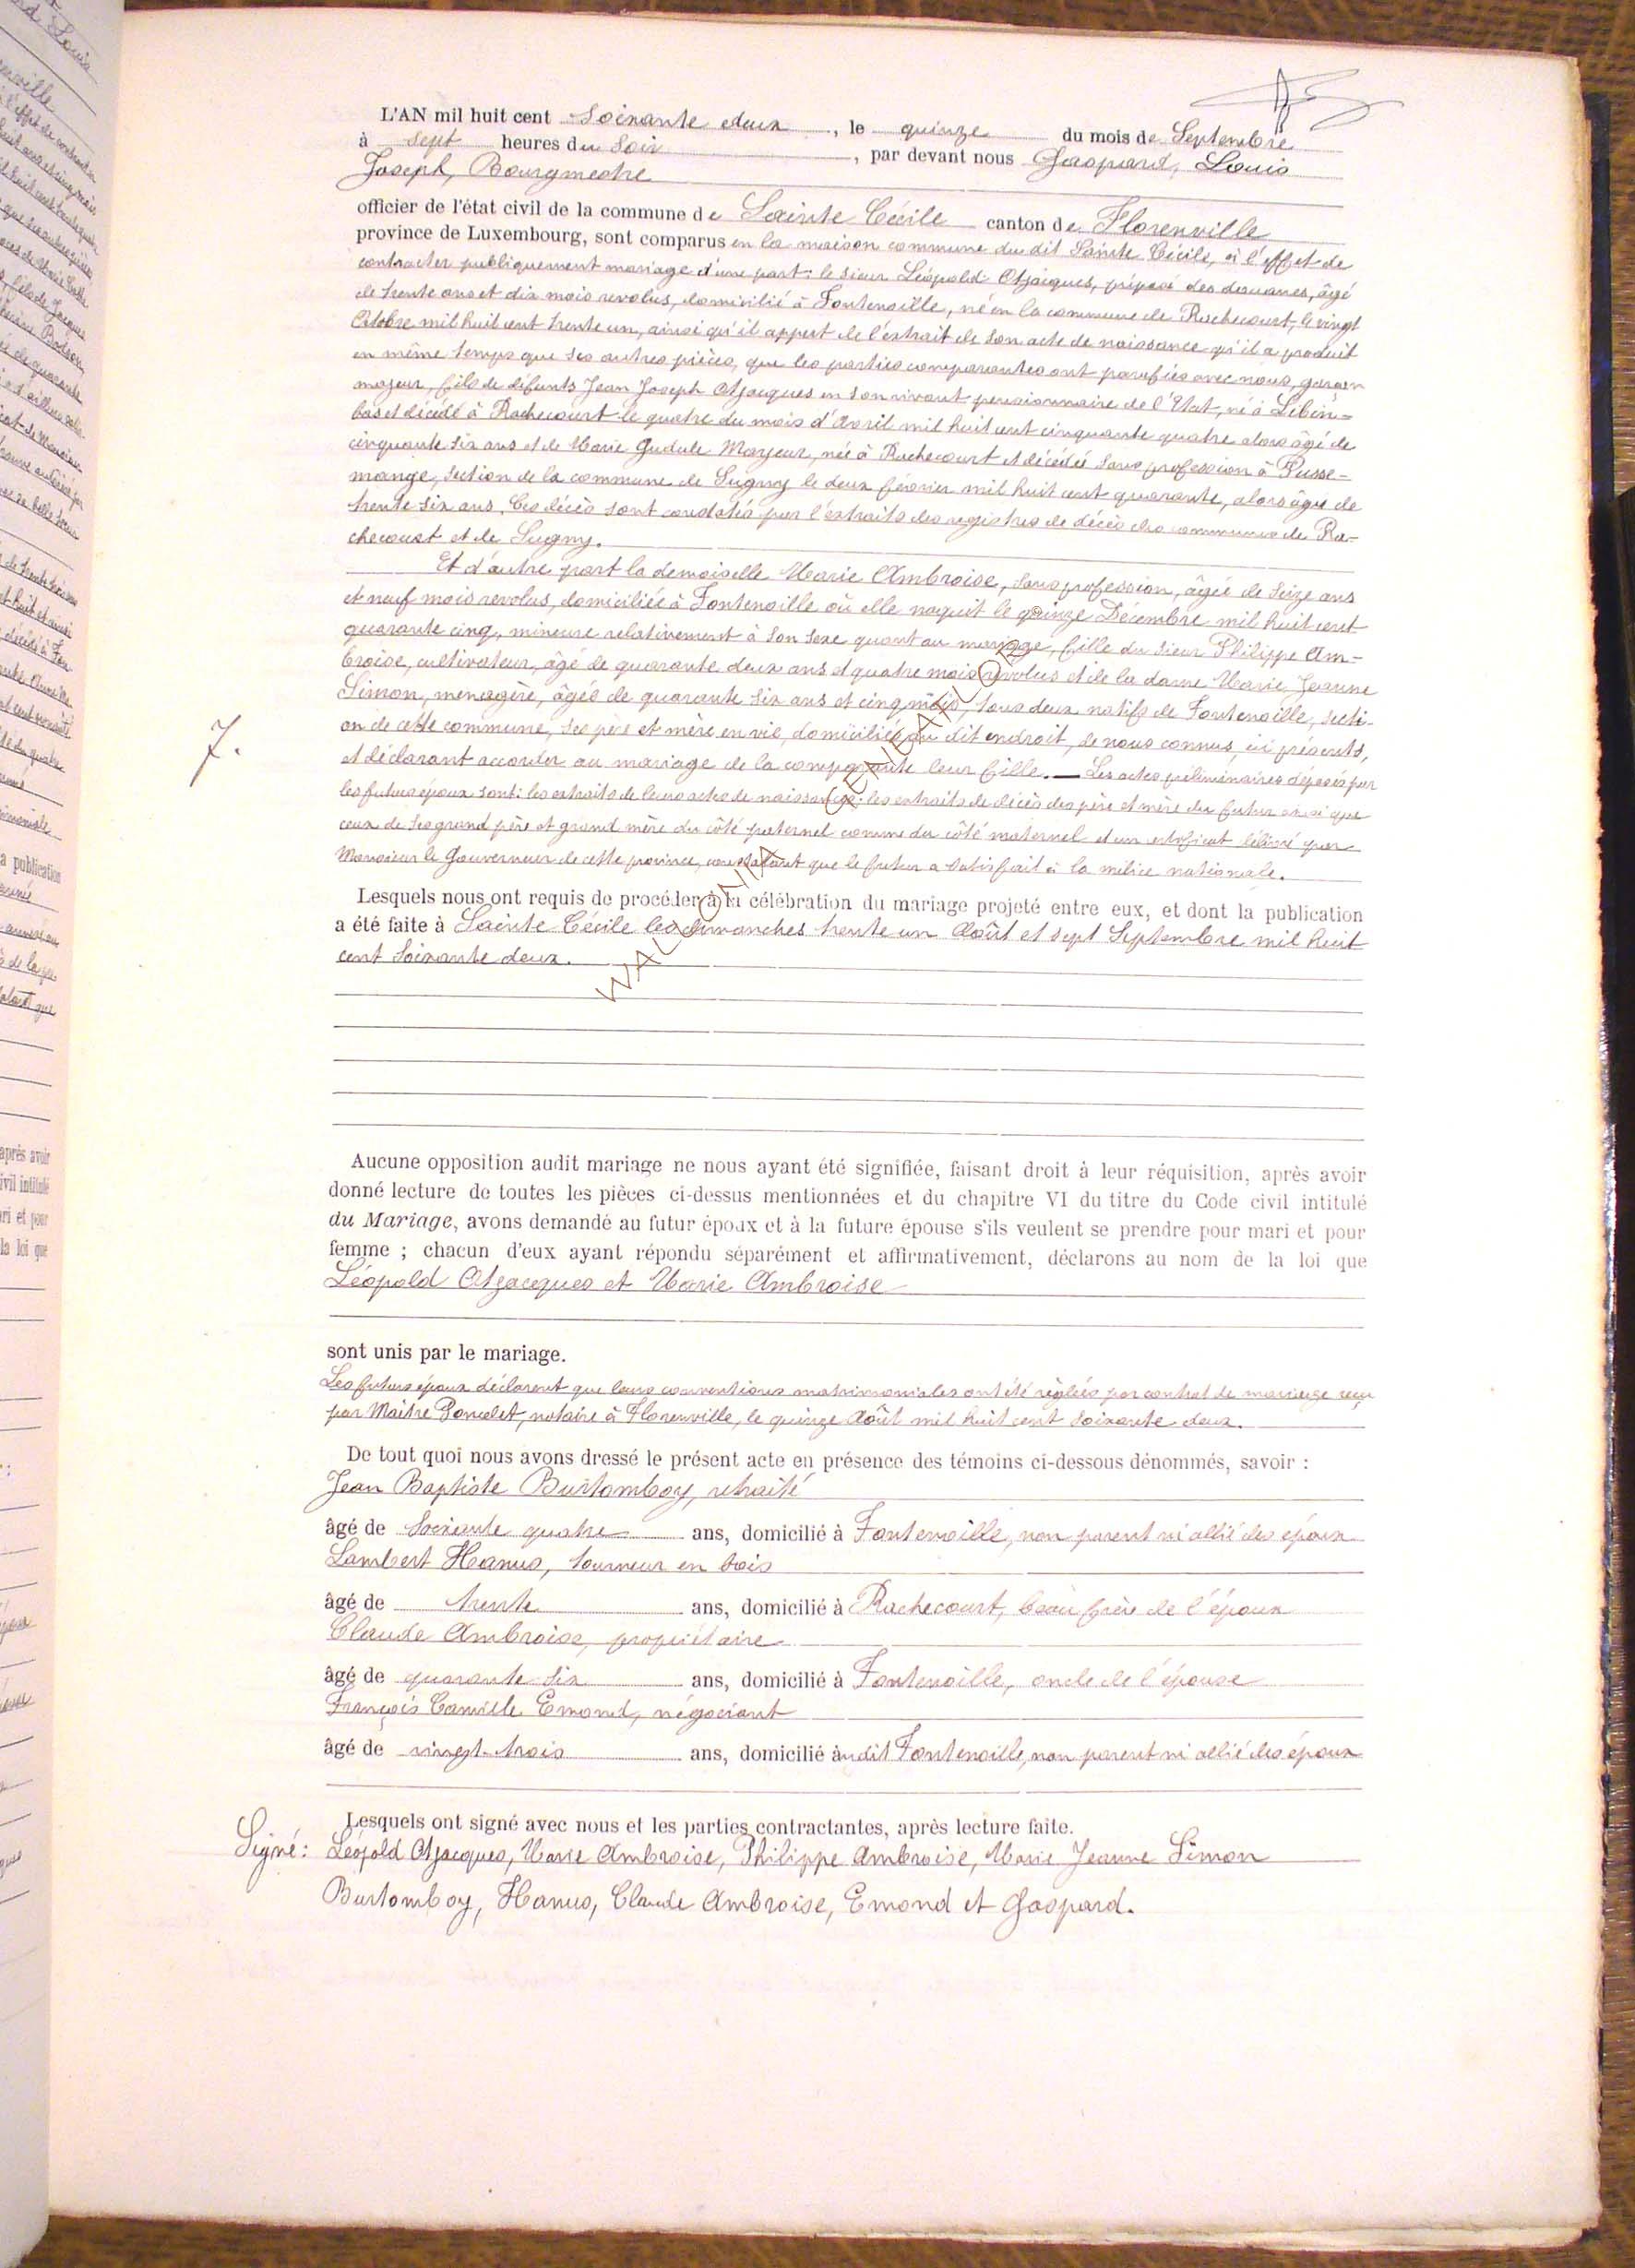 L'AN mil huit cent Soixante deux, le quinze du mois de Septembre
à sept heures du Soir, par devant nous Gaspard, Louis
Joseph, Bourgmestre
officier de l'état civil de la commune de Sainte Cécile canton de Florenville
province de Luxembourg, sont comparus en la maison commune du dit Sainte Cécile, à l'effet de
contracter publiquement mariage d'une part: le sieur Léopold Atjacques, préposé des douanes, âgé
de trente ans et dix mois revolus, domicilié à Fontenoille, né en la commune de Rachecourt, le vingt
Octobre mil huit cent trente un, ainsi qu'il appert de l'extrait de son acte de naissance qu'il a produit
en même temps que ses autres pièces, que les parties comparantes ont parafées avec nous, garçon
majeur, fils de défunts Jean Joseph Atjacques en son vivant pensionnaire de l'Etat, né à Libin-
bas et décédé à Rachecourt le quatre du mois d'Avril mil huit cent cinquante quatre alors âgé de
cinquante six ans et de Marie Gudule Mayeur, née à Rachecourt et décédée sans profession à Pusse-
mange, section de la commune de Sugny le deux février mil huit cent quarante, alors âgée de
trente six ans. Ces décès sont constatés par l'extraits des registres de décès des communes de Ra-
checourt et de Sugny.
Et d'autre part la demoiselle Marie Ambroise, sans profession, âgée de seize ans
et neuf mois revolus, domiciliée à Fontenoille où elle naquit le quinze Décembre mil huit cent
quarante cinq, mineure relativement à son sexe quant au mariage, fille du sieur Philippe Am-
broise, cultivateur, âgé de quarante deux ans et quatre mois revolus et de la dame Marie Jeanne
Simon, menagère, âgée de quarante six ans et cinq mois, tous deux natifs de Fontenoille, secti-
on de cette commune, ses père et mère en vie, domiciliés au dit endroit, de nous connus, ici présents,
et déclarant accorder au mariage de la comparante leur fille. — Les actes préliminaires déposés par
les futurs époux sont: les extraits de leurs actes de naissance; les extraits de décès des père et mère du futur ainsi que
ceux de ses grand père et grand mère du côté paternel comme du côté maternel et un certificat délivré par
Monsieur le Gouverneur de cette province, constatant que le futur a satisfait à la milice nationale.
WALLONIA GENEALOGY
7.
Lesquels nous ont requis de procéder à la célébration du mariage projeté entre eux, et dont la publication
a été faite à Sainte Cécile les dimanches trente un Août et sept Septembre mil huit
cent Soixante deux.
Aucune opposition audit mariage ne nous ayant été signifiée, faisant droit à leur réquisition, après avoir
donné lecture de toutes les pièces ci-dessus mentionnées et du chapitre VI du titre du Code civil intitulé
du Mariage, avons demandé au futur époux et à la future épouse s'ils veulent se prendre pour mari et pour
femme ; chacun d'eux ayant répondu séparément et affirmativement, déclarons au nom de la loi que
Léopold Atjacques et Marie Ambroise
sont unis par le mariage.
Les futurs époux déclarent que leurs conventions matrimoniales ont été réglées par contrat de mariage reçu
par Maître Poncelet, notaire à Florenville, le quinze Août mil huit cent soixante deux.
De tout quoi nous avons dressé le présent acte en présence des témoins ci-dessous dénommés, savoir :
Jean Baptiste Burtomboy, retraité
âgé de Soixante quatre ans, domicilié à Fontenoille, non parent ni allié des époux
Lambert Hanus, tourneur en bois
âgé de trente ans, domicilié à Rachecourt, beau frère de l'époux
Claude Ambroise, propriétaire
âgé de quarante six ans, domicilié à Fontenoille, oncle de l'épouse
François Camille Emond, négociant
âgé de vingt-trois ans, domicilié àudit Fontenoille, non parent ni allié des époux
Lesquels ont signé avec nous et les parties contractantes, après lecture faite.
Signé: Léopold Atjacques, Marie Ambroise, Philippe Ambroise, Marie Jeanne Simon
Burtomboy, Hanus, Claude Ambroise, Emond et Gaspard.